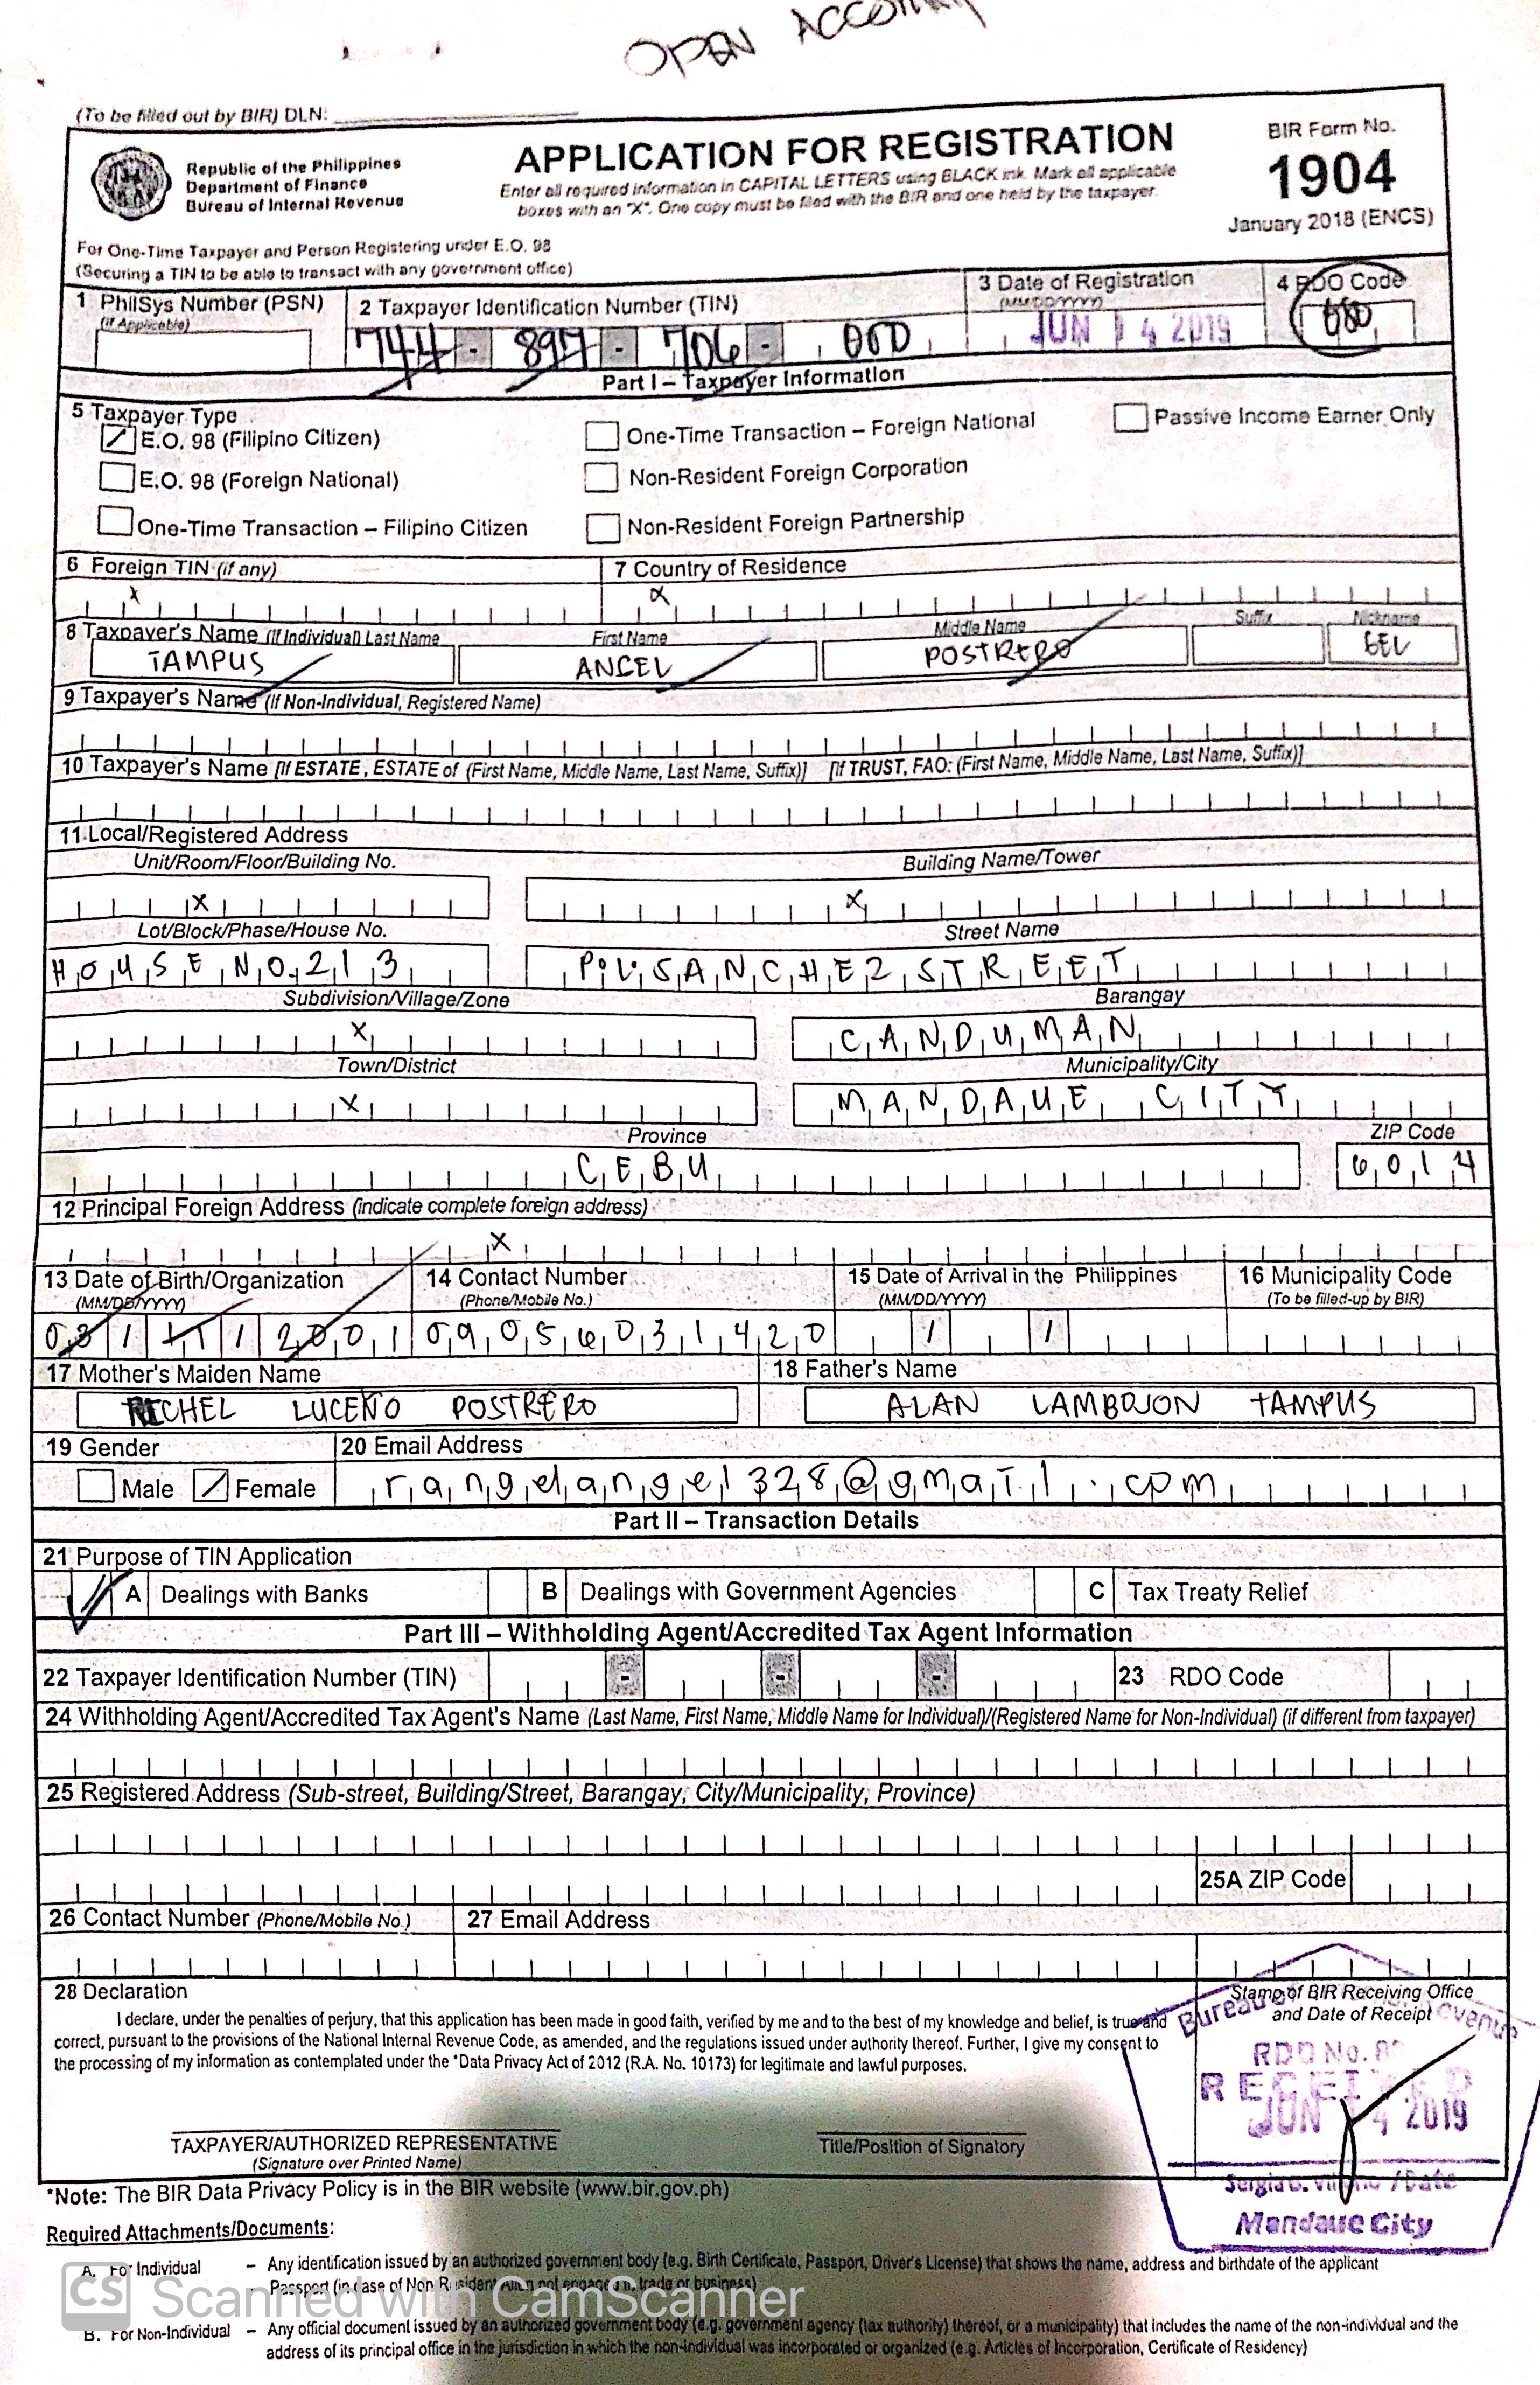 OPEN ACCOUNT
(To be filled out by BIR) DLN:
Republic of the Philippines
Department of Finance
Bureau of Internal Revenue
APPLICATION FOR REGISTRATION
Enter all required information in CAPITAL LETTERS using BLACK ink. Mark all applicable
boxes with an "X". One copy must be filed with the BIR and one held by the taxpayer.
BIR Form No.
1904
January 2018 (ENCS)
For One-Time Taxpayer and Person Registering under E.O. 98
(Securing a TIN to be able to transact with any government office)
1 PhilSys Number (PSN) 2 Taxpayer Identification Number (TIN) 3 Date of Registration 4 RDO Code
(If Applicable) (MM/DD/YYYY)
744 - 897 - 706 - 000 JUN 14 2019 080
Part I – Taxpayer Information
5 Taxpayer Type
E.O. 98 (Filipino Citizen) One-Time Transaction – Foreign National Passive Income Earner Only
E.O. 98 (Foreign National) Non-Resident Foreign Corporation
One-Time Transaction – Filipino Citizen Non-Resident Foreign Partnership
6 Foreign TIN (if any) 7 Country of Residence
x x
8 Taxpayer's Name (If Individual) Last Name First Name Middle Name Suffix Nickname
TAMPUS ANGEL POSTRERO GEL
9 Taxpayer's Name (If Non-Individual, Registered Name)
10 Taxpayer's Name [If ESTATE, ESTATE of (First Name, Middle Name, Last Name, Suffix)] [If TRUST, FAO: (First Name, Middle Name, Last Name, Suffix)]
11 Local/Registered Address
Unit/Room/Floor/Building No. Building Name/Tower
x x
Lot/Block/Phase/House No. Street Name
HOUSE NO. 213 P.V. SANCHEZ STREET
Subdivision/Village/Zone Barangay
x CANDUMAN
Town/District Municipality/City
x MANDAUE CITY
Province ZIP Code
CEBU 6014
12 Principal Foreign Address (indicate complete foreign address)
x
13 Date of Birth/Organization 14 Contact Number 15 Date of Arrival in the Philippines 16 Municipality Code
(MM/DD/YYYY) (Phone/Mobile No.) (MM/DD/YYYY) (To be filled-up by BIR)
03/11/2001 09056031420 / /
17 Mother's Maiden Name 18 Father's Name
RICHEL LUCEÑO POSTRERO ALAN LAMBOJON TAMPUS
19 Gender 20 Email Address
Male Female rangelangel328@gmail.com
Part II – Transaction Details
21 Purpose of TIN Application
A Dealings with Banks B Dealings with Government Agencies C Tax Treaty Relief
Part III – Withholding Agent/Accredited Tax Agent Information
22 Taxpayer Identification Number (TIN) - - - 23 RDO Code
24 Withholding Agent/Accredited Tax Agent's Name (Last Name, First Name, Middle Name for Individual)/(Registered Name for Non-Individual) (if different from taxpayer)
25 Registered Address (Sub-street, Building/Street, Barangay, City/Municipality, Province)
25A ZIP Code
26 Contact Number (Phone/Mobile No.) 27 Email Address
28 Declaration
I declare, under the penalties of perjury, that this application has been made in good faith, verified by me and to the best of my knowledge and belief, is true and
correct, pursuant to the provisions of the National Internal Revenue Code, as amended, and the regulations issued under authority thereof. Further, I give my consent to
the processing of my information as contemplated under the *Data Privacy Act of 2012 (R.A. No. 10173) for legitimate and lawful purposes.
Stamp of BIR Receiving Office
and Date of Receipt
Bureau of Revenue
RDO No. 80
RECEIVED
JUN 14 2019
/Date
Mandaue City
TAXPAYER/AUTHORIZED REPRESENTATIVE Title/Position of Signatory
(Signature over Printed Name)
*Note: The BIR Data Privacy Policy is in the BIR website (www.bir.gov.ph)
Required Attachments/Documents:
A. For Individual – Any identification issued by an authorized government body (e.g. Birth Certificate, Passport, Driver's License) that shows the name, address and birthdate of the applicant
- Passport (in case of Non Resident Alien not engaged in trade or business)
CS Scanned with CamScanner
B. For Non-Individual – Any official document issued by an authorized government body (e.g. government agency (tax authority) thereof, or a municipality) that includes the name of the non-individual and the
address of its principal office in the jurisdiction in which the non-individual was incorporated or organized (e.g. Articles of Incorporation, Certificate of Residency)